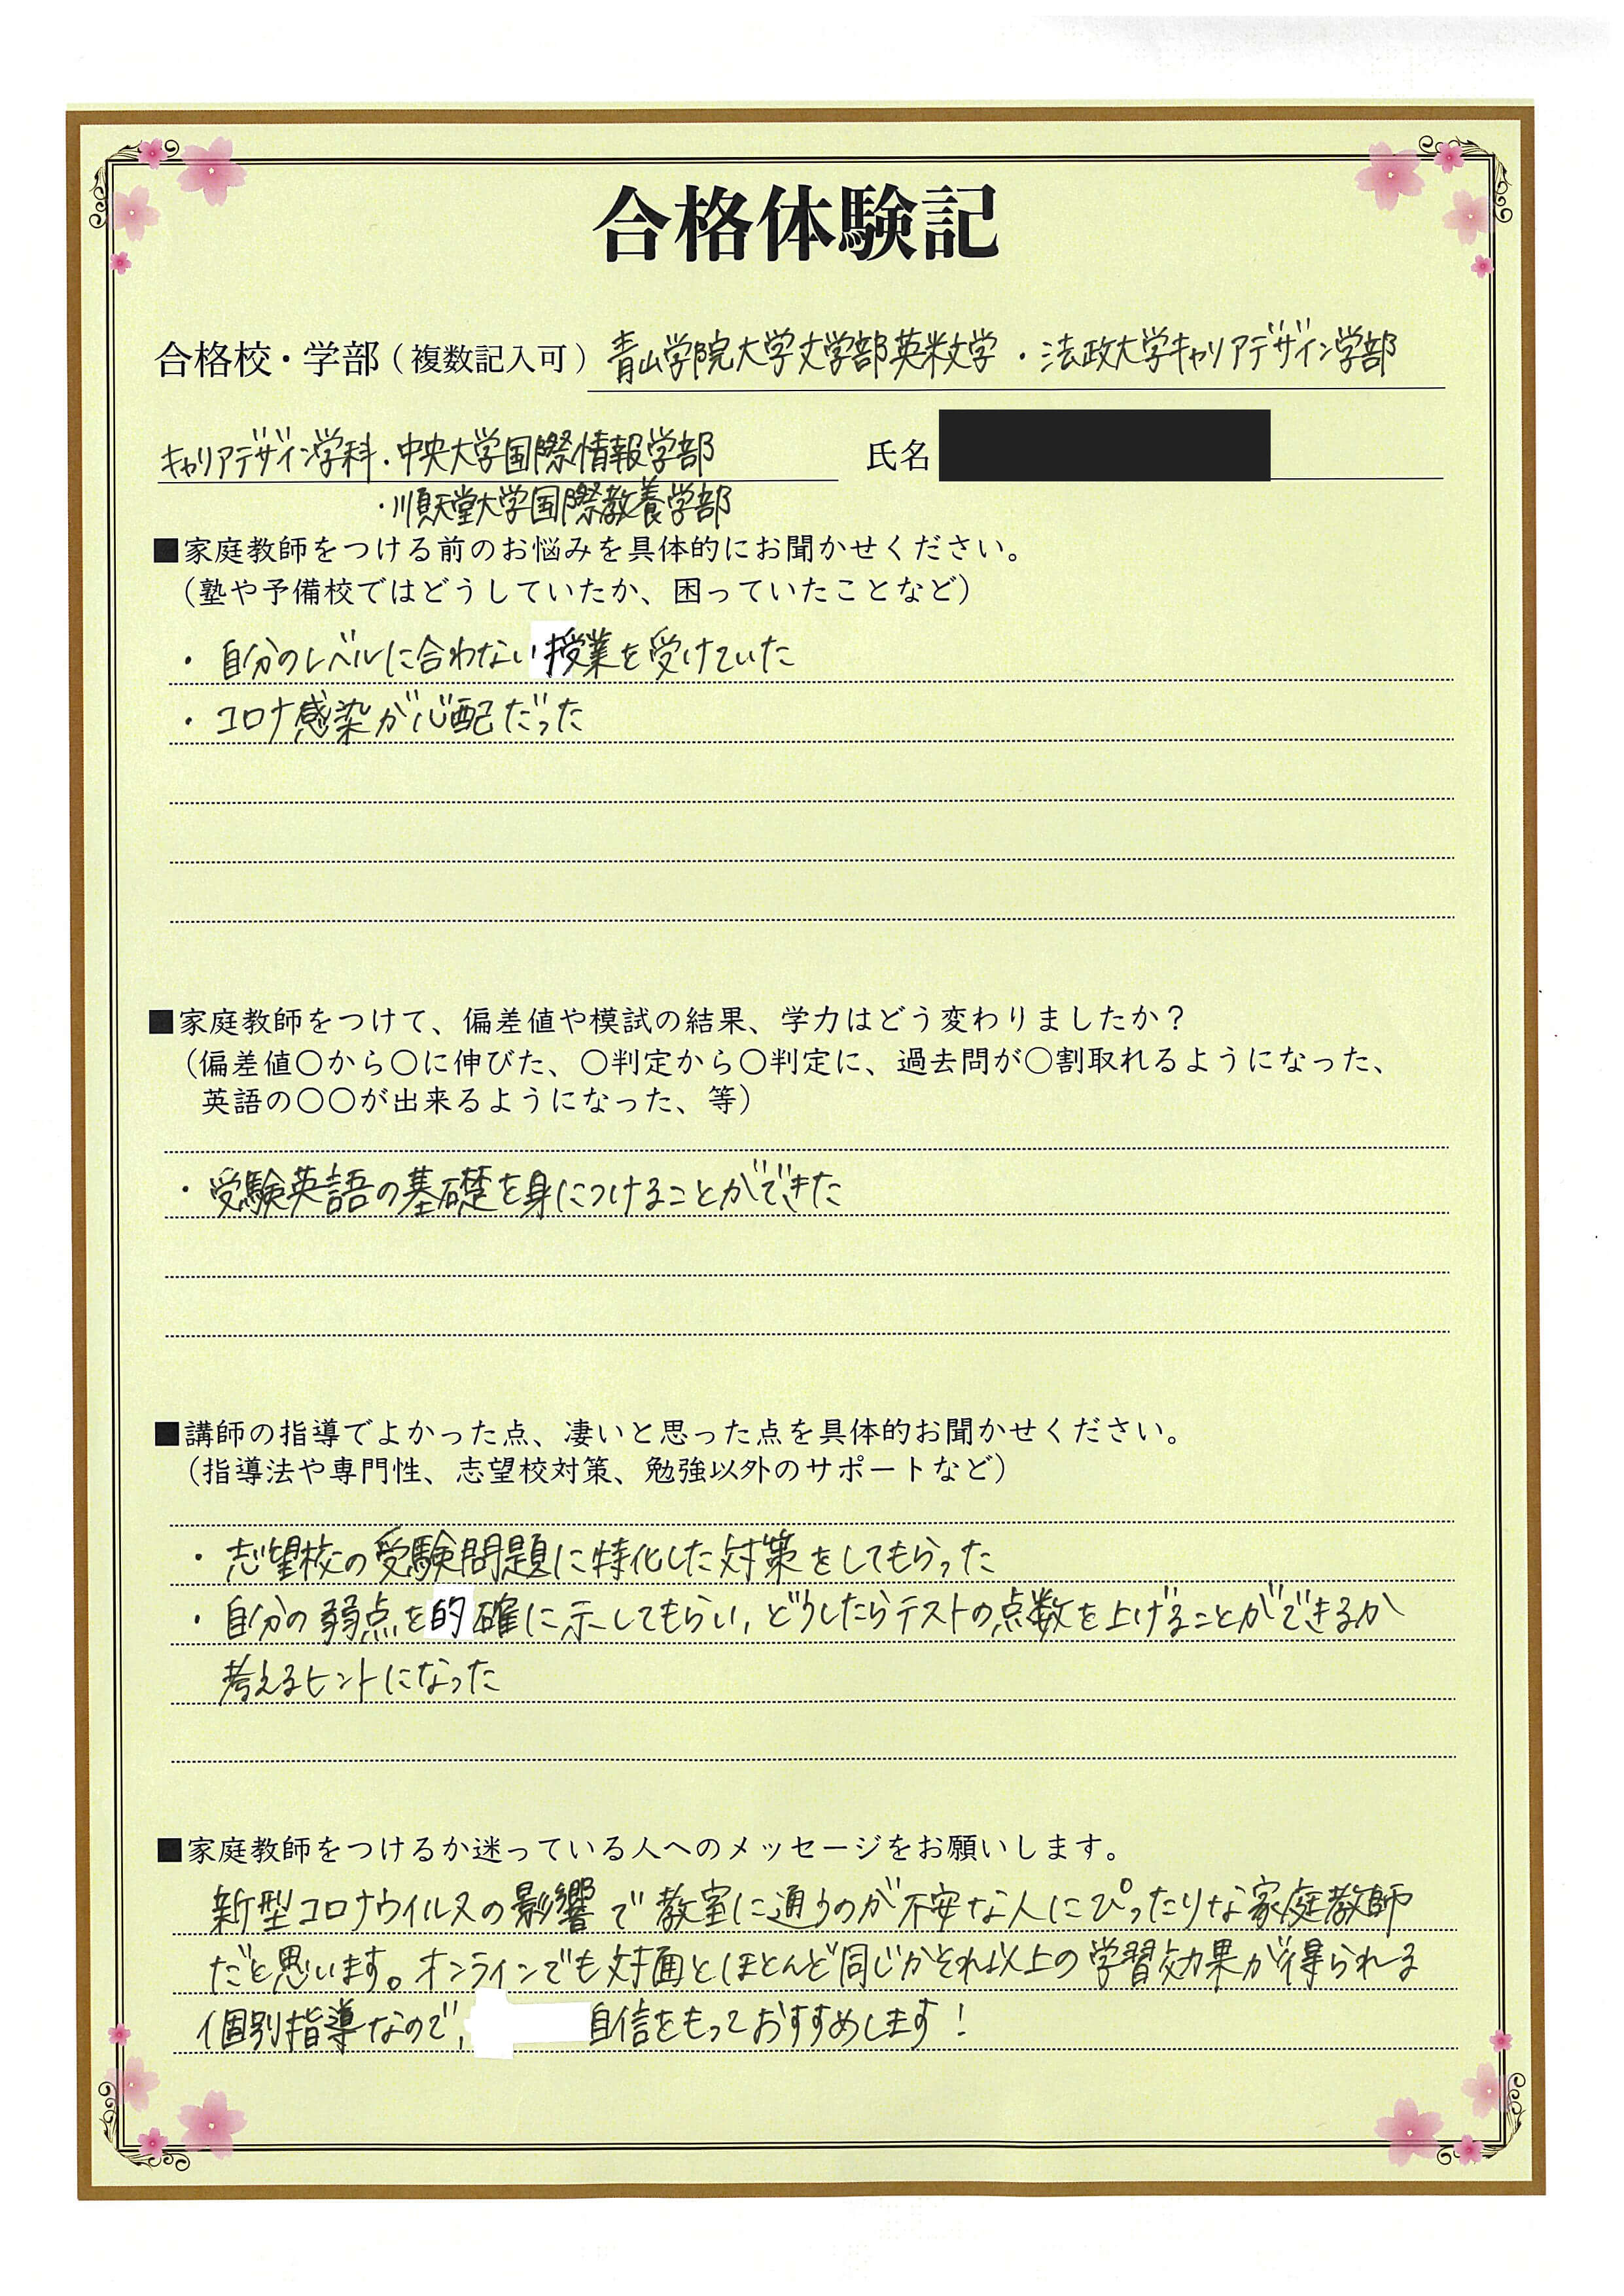 合格体験記
合格校・学部(複数記入可) 青山学院大学文学部英米文学・法政大学キャリアデザイン学部
キャリアデザイン学科・中央大学国際情報学部 氏名
・順天堂大学国際教養学部
■家庭教師をつける前のお悩みを具体的にお聞かせください。
(塾や予備校ではどうしていたか、困っていたことなど)
・自分のレベルに合わない授業を受けていた
・コロナ感染が心配だった
■家庭教師をつけて、偏差値や模試の結果、学力はどう変わりましたか?
(偏差値○から○に伸びた、○判定から○判定に、過去問が○割取れるようになった、
英語の○○が出来るようになった、等)
・受験英語の基礎を身につけることができた
■講師の指導でよかった点、凄いと思った点を具体的お聞かせください。
(指導法や専門性、志望校対策、勉強以外のサポートなど)
・志望校の受験問題に特化した対策をしてもらった
・自分の弱点を的確に示してもらい,どうしたらテストの点数を上げることができるか
考えるヒントになった
■家庭教師をつけるか迷っている人へのメッセージをお願いします。
新型コロナウイルスの影響で教室に通うのが不安な人にぴったりな家庭教師
だと思います。オンラインでも対面とほとんど同じかそれ以上の学習効果が得られる
個別指導なので, 自信をもっておすすめします!